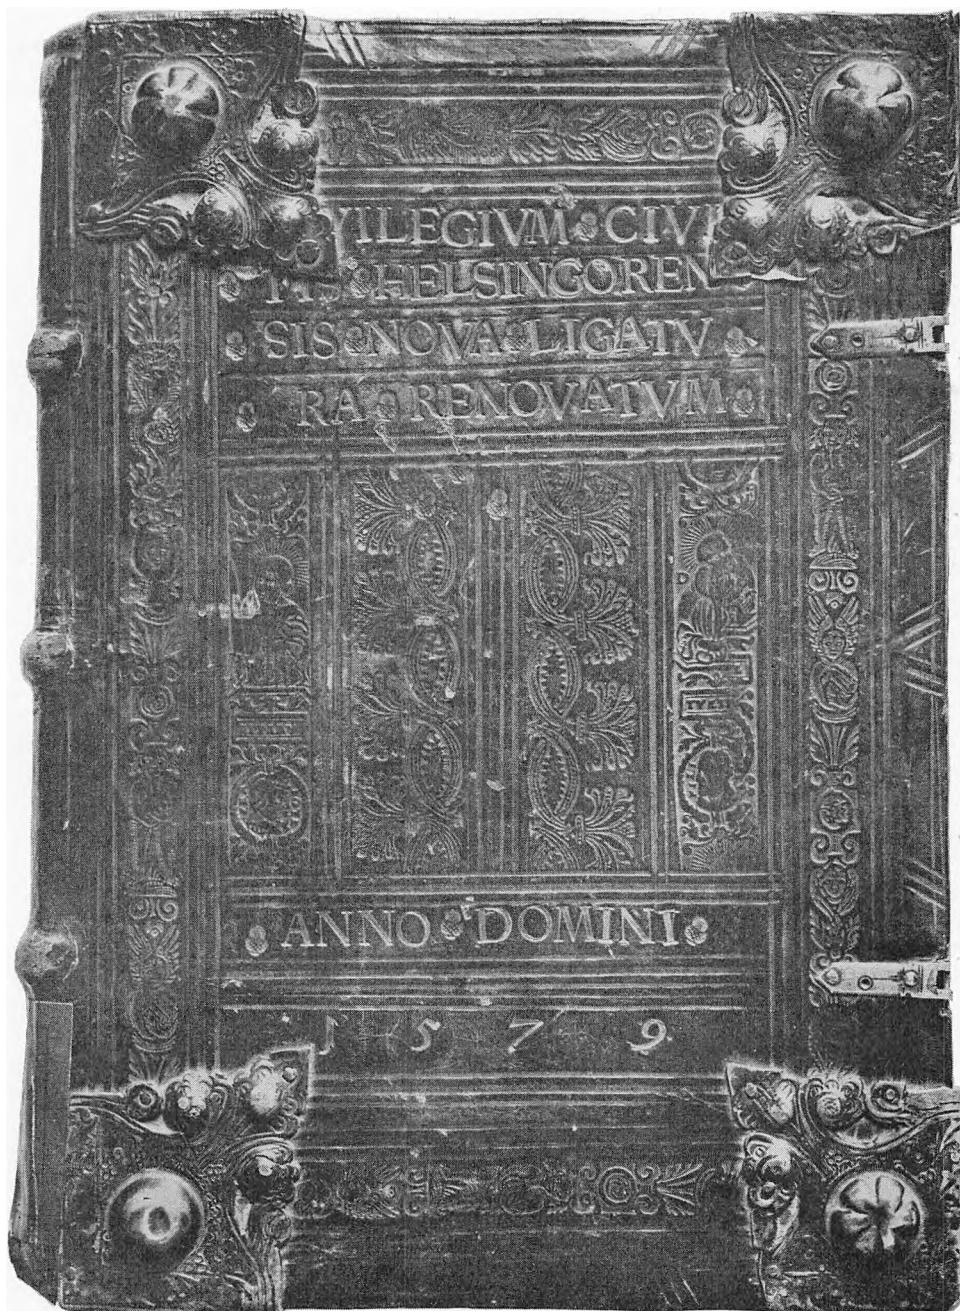 VILEGIVM CIVI
HELSINGOREN
SIS NOVA LIGATV
RA RENOVATVM
ANNO DOMINI
1579